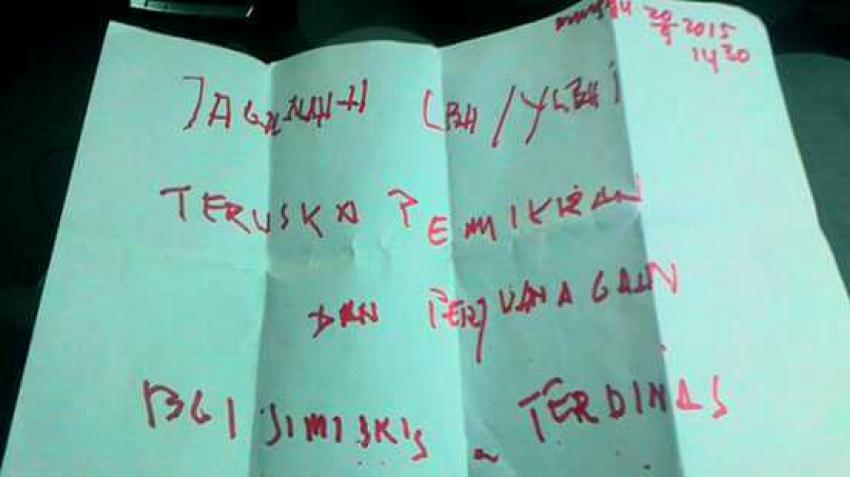 minggu 20/9 2015
1430
JAGALAH LBH/YLBHI
TERUSKA PEMIKRAN
DAN PERJUANAGAN
BGI SIMISKIS
TERDINAS